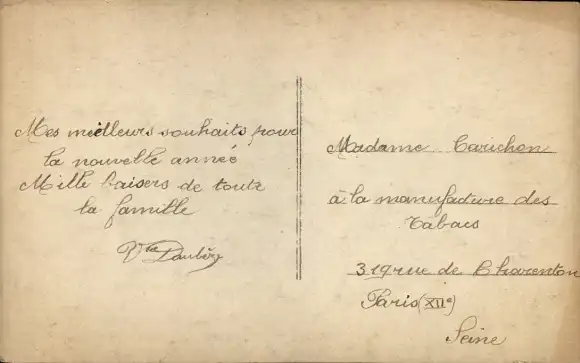 Mes meilleurs souhaits pour
la nouvelle année
Mille baisers de toute
la famille
Vve
Madame Carichon
à la manufacture des
Tabacs
319 rue de Charenton
Paris (XIIe)
Seine